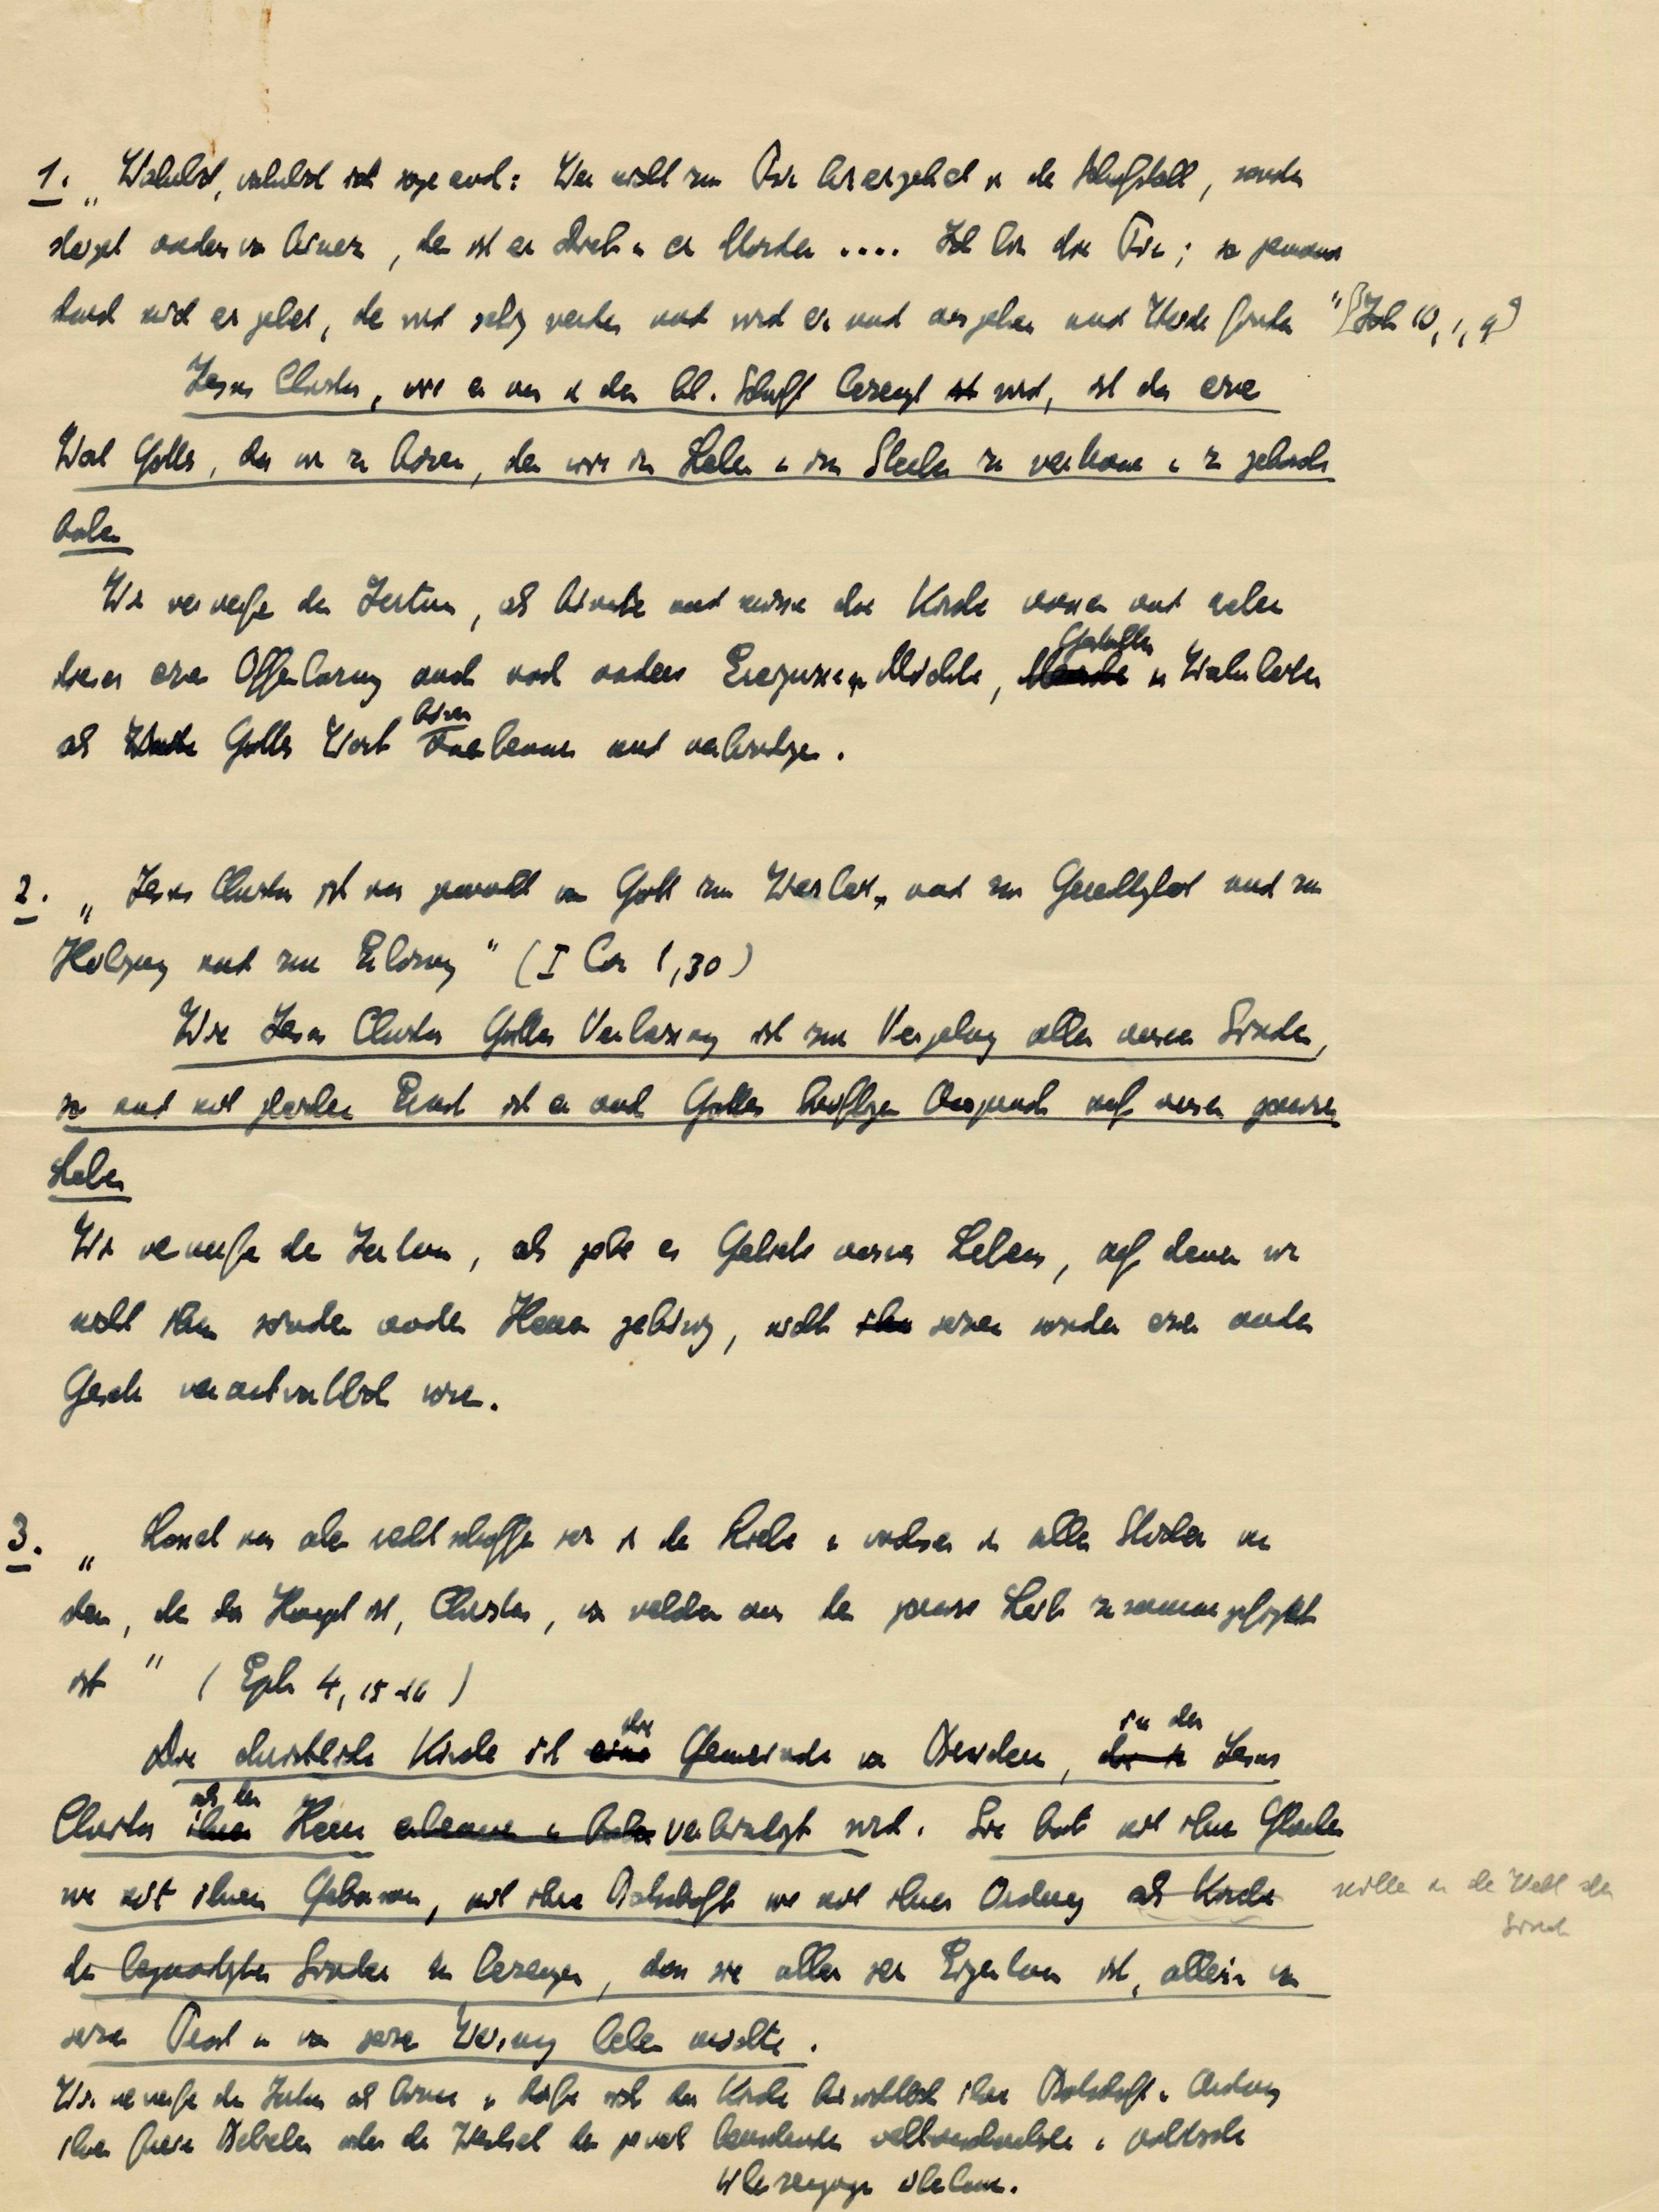 1. „Wahrlich, wahrlich ich sage euch: Wer nicht zur Tür hineingehet in den Schafstall, sondern
steiget anderswo hinein, der ist ein Dieb u. ein Mörder .... Ich bin die Tür; so jemand
durch mich eingehet, der wird selig werden und wird ein und ausgehen und Weide finden" (Joh 10, 1, 9)
Jesus Christus, wie er uns in der hl. Schrift bezeugt ist wird, ist das eine
Wort Gottes, das wir zu hören, dem wir im Leben u. im Sterben zu vertrauen u. zu gehorchen
haben
Wir verwerfen den Irrtum, als könnte und müsse die Kirche ausser und neben
diesem einen Offenbarung auch noch andere Ereignisse u. Mächte, Gestalten u. Wahrheiten
als Gottes Wort hören anerkennen und verkündigen.
2. „Jesus Christus ist uns gemacht von Gott zur Weisheit und zur Gerechtigkeit und zur
Heiligung und zur Erlösung" (I Cor 1,30)
Wie Jesus Christus Gottes Verheissung ist zur Vergebung aller unserer Sünden,
so und mit gleichem Ernst ist er auch Gottes kräftiger Anspruch auf unser ganzes
Leben
Wir verwerfen den Irrtum, als gebe es Gebiete unseres Lebens, auf denen wir
nicht ihm sondern anderen Herren gehörig, nicht ihm seinem sondern einem anderen
Gesetz verantwortlich wären.
3. „Lasset uns aber rechtschaffen sein in der Liebe u. wachsen in allen Stücken an
dem, der das Haupt ist, Christus, von welchem aus der ganze Leib zusammengefügt
ist" (Eph 4, 15-16)
Die christliche Kirche ist eine die Gemeinde von Brüdern, in der Jesus
Christus ihren als der Herr erkennen u. verkündigt wird. Sie hat mit ihrem Glauben
wie mit ihrem Gehorsam, mit ihrer Botschaft wie mit ihrer Ordnung als Kirche
mitten in der Welt der
Sünde
der begnadigten Sünder zu bezeugen, dass sie allein sein Eigentum ist, allein von
seinem Trost u. von seiner Weisung leben möchte.
Wir verwerfen den Irrtum als könne u. dürfe sich die Kirche hinsichtlich ihrer Botschaft u. Ordnung
ihrem freien Belieben oder dem Wechsel der jeweils herrschenden weltanschaulichen u. politischen
Überzeugungen überlassen.